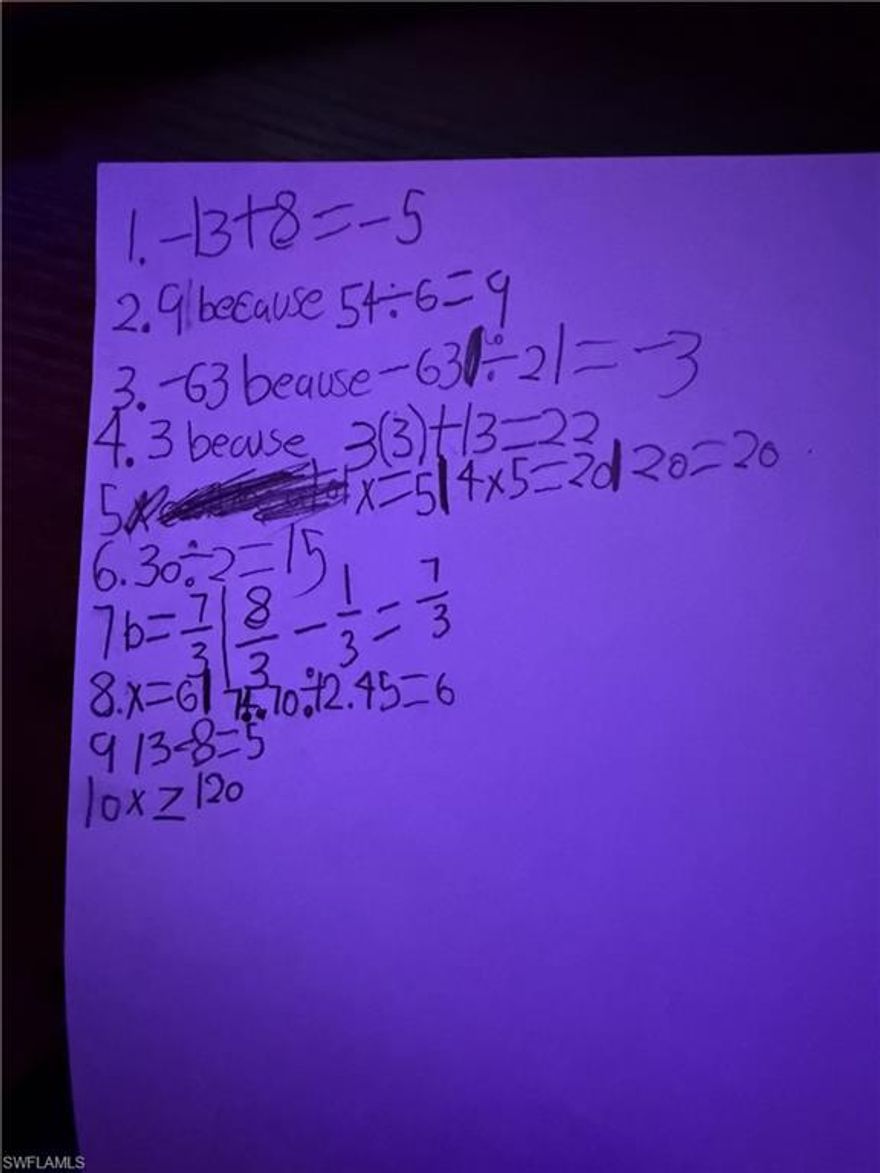 1. -13+8=-5
2. 9|because 54÷6=9
3. -63 beause -63|÷21=-3
4. 3 becuse 3(3)+13=22
5 x=5|4x5=20|20=20
6. 30÷2=15
7b=7/3|8/3-1/3=7/3
8. x=6| 74.70÷12.45=6
9 13-8=5
10x≥120
SWFLAMLS